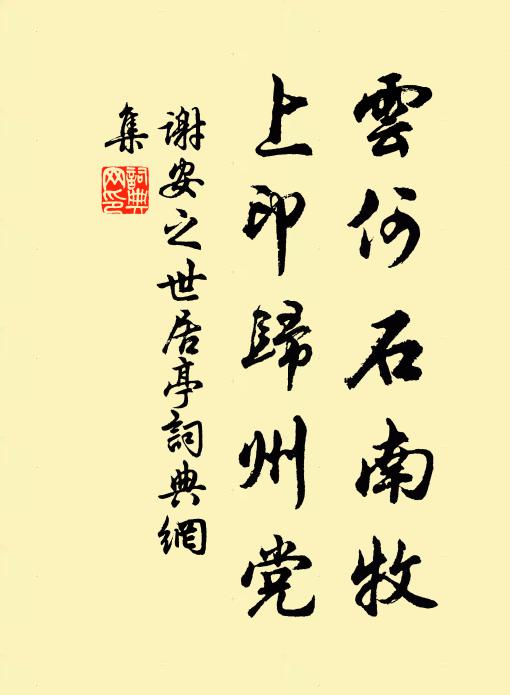 雲何石南牧
上印歸州党
謝安之世居亭詞典網
集
詞典網印